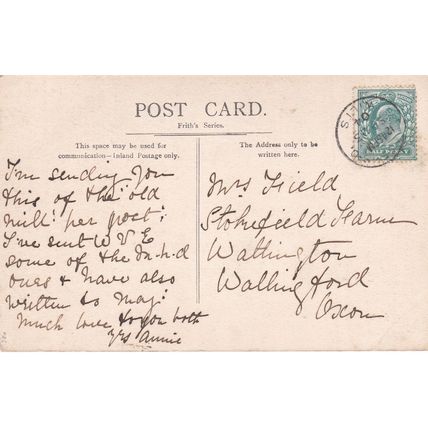 POST CARD.
Frith's Series.
This space may be used for
communication—Inland Postage only.
The Address only to be
written here.
I'm sending you
this of the old
mill: per post:
I've sent W V E
some of the m.h.d
ones & have also
written to Maj:
Much love to you both
yrs Annie
Mrs Field
Stokefield Farm
Watlington
Wallingford
Oxon
HALF PENNY